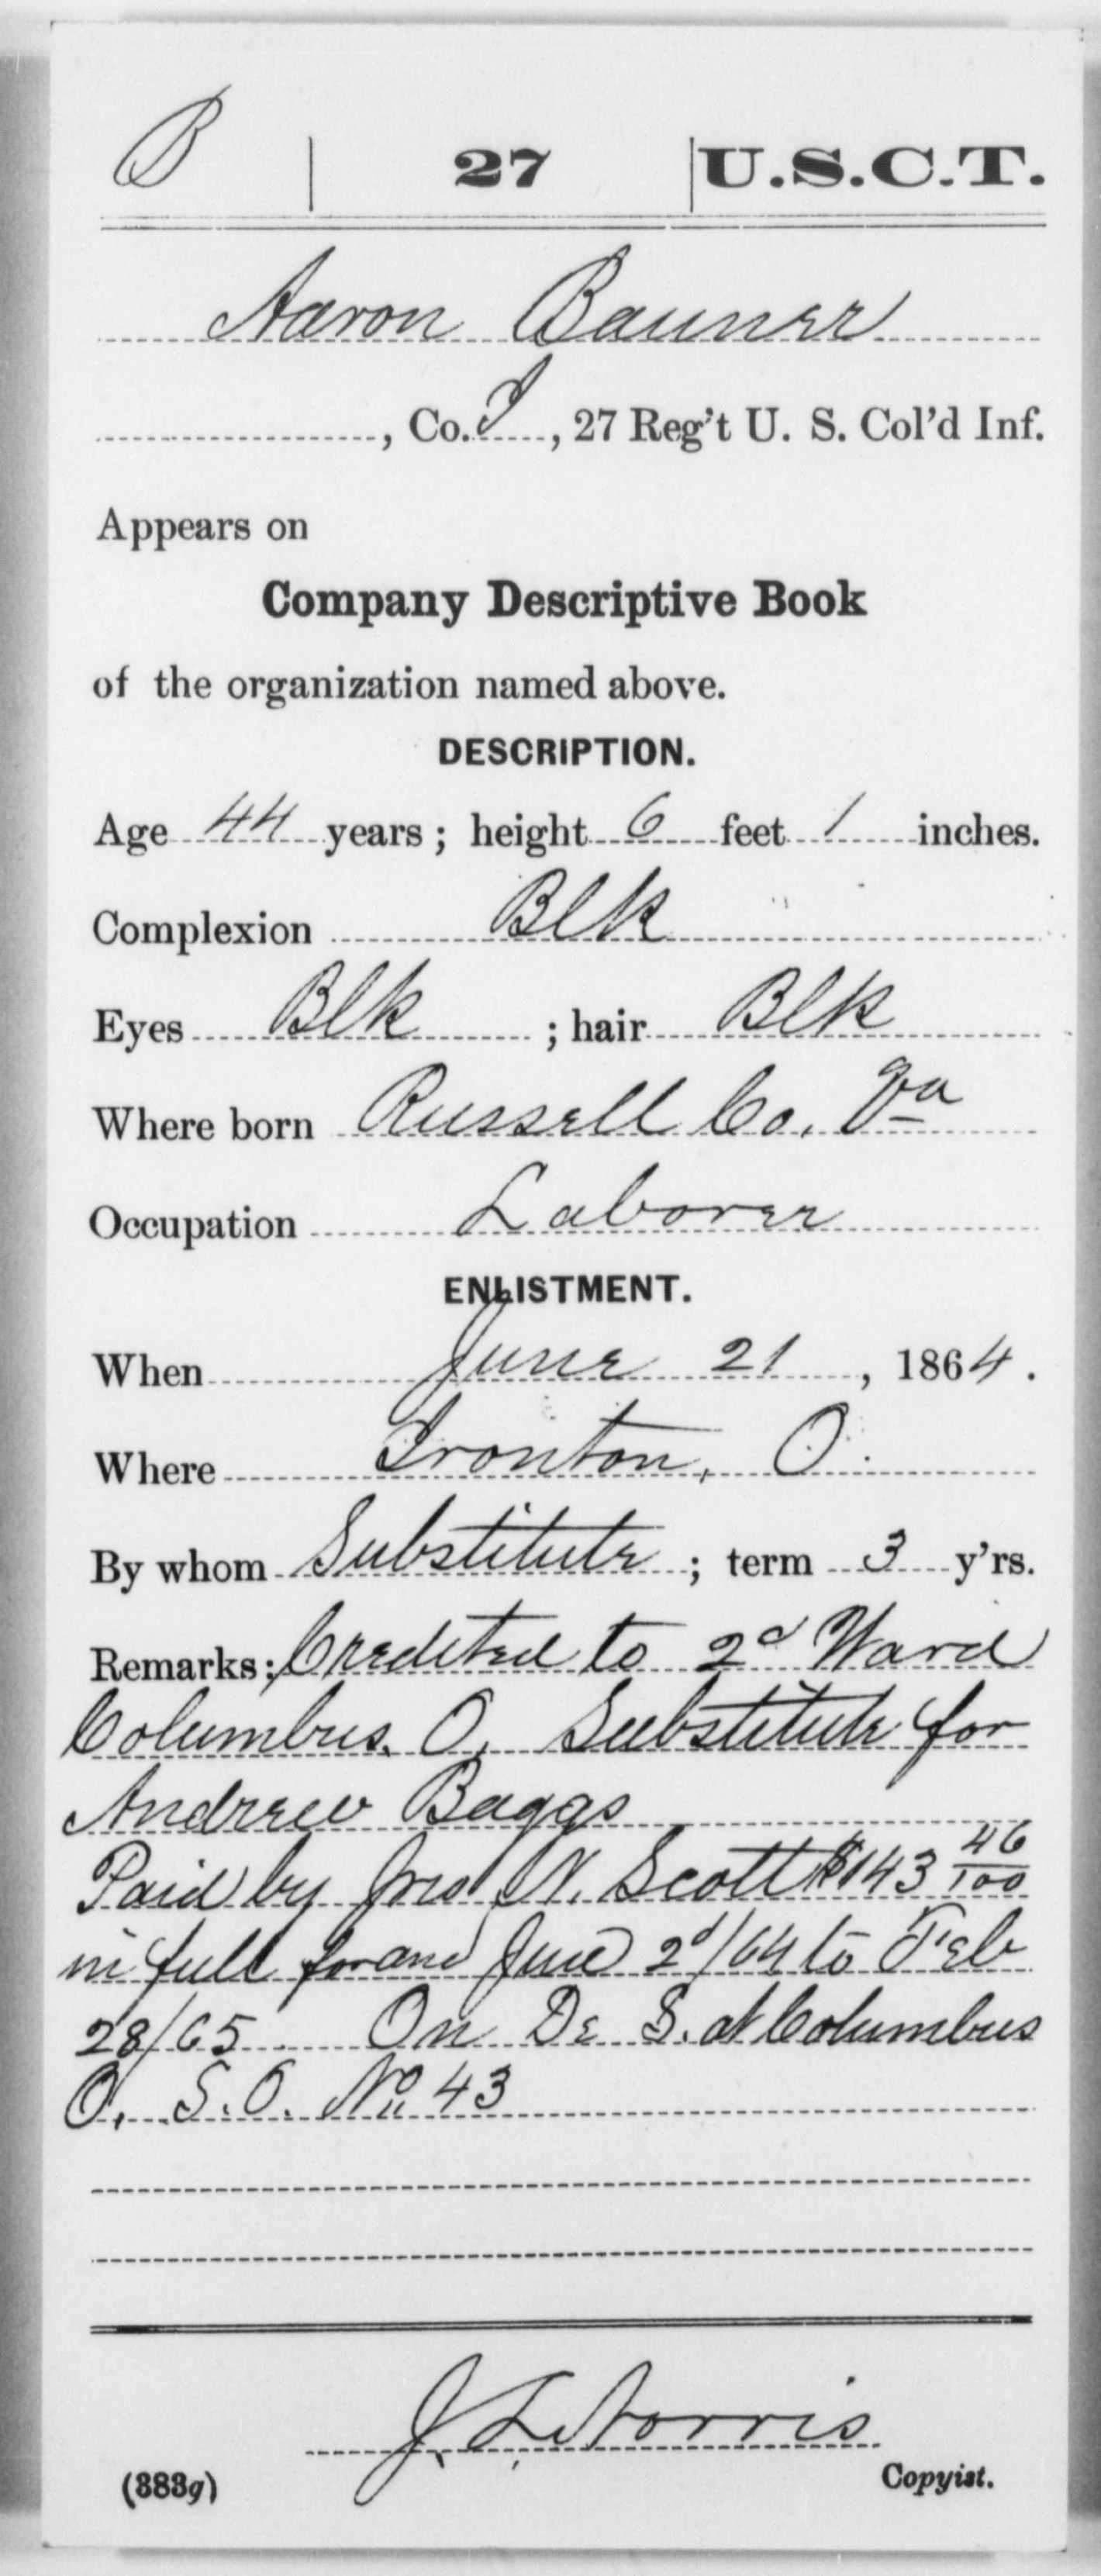 B | 27 | U.S.C.T.
Aaron Bauner
, Co. I, 27 Reg't U. S. Col'd Inf.
Appears on
Company Descriptive Book
of the organization named above.
DESCRIPTION.
Age 44 years; height 6 feet 1 inches.
Complexion Blk
Eyes Blk; hair Blk
Where born Russell Co. Va
Occupation Laborer
ENLISTMENT.
When June 21, 1864.
Where Ironton, O.
By whom Substitute; term 3 y'rs.
Remarks: Credited to 2d Ward
Columbus. O. Substitute for
Andrew Baggs
Paid by Jno. N. Scott $143 46/100
in full for and June 2d/64 to Feb
28/65 On De S. at Columbus
O. S.O. No 43
J. L. Norris
(383g) Copyist.